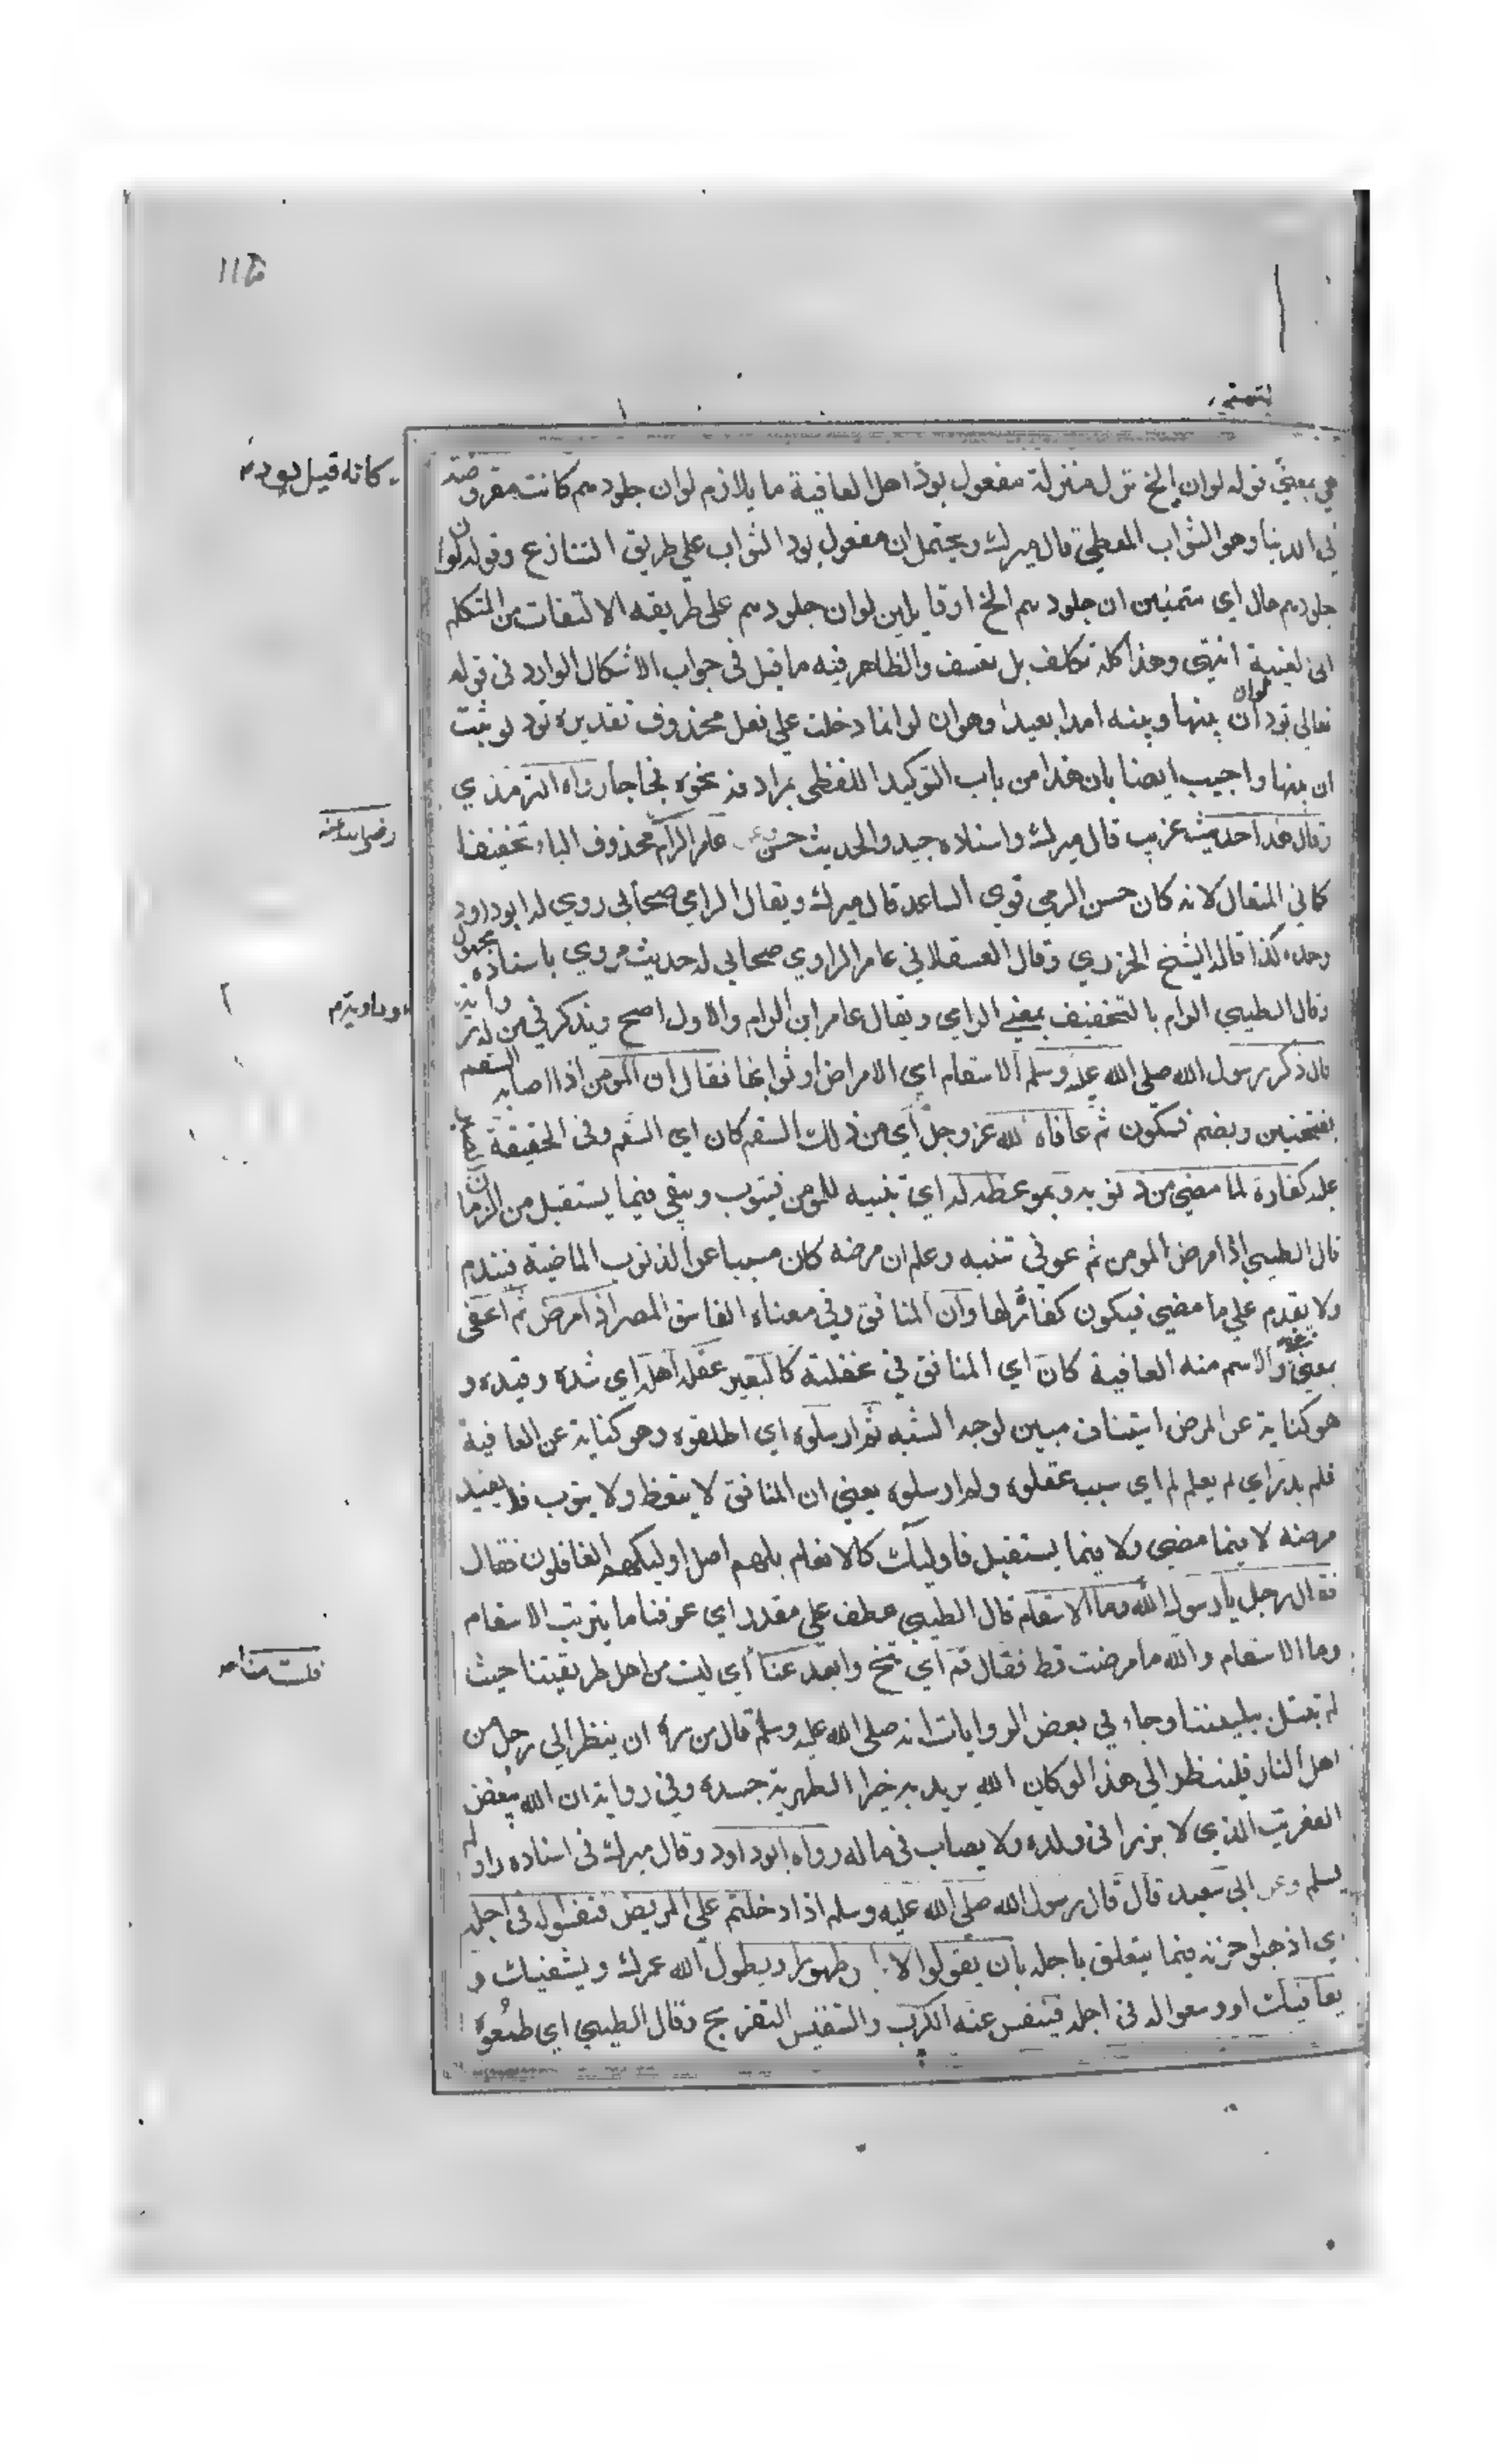 يتمنى
هي بمعنى قوله لو ان الخ نزل منزلة مفعول يود اهل العافية ما يلازم لو ان جلودهم كانت مقروضة
كانه قيل يود
في الدنيا وهو الثواب المعطى قال ميرك ويحتمل ان مفعول يود الثواب على طريق التنازع وقوله لو ان
جلودهم حال اي متمنين ان جلودهم الخ او قايلين لو ان جلودهم على طريقه الالتفات من المتكلم
الى لغيبة انتهى وهذا كله تكلف بل تعسف والظاهر فيه ما قيل في جواب الاشكال الوارد في قوله
تعالى تود لو ان بينها وبينه امدا بعيدا وهو ان لو انما دخلت على فعل محذوف تقديره تود لو ثبت
ان بينها واجيب ايضا بان هذا من باب التوكيد اللفظي بمرادفه نحوه فجاجا رواه الترمذي
وقال هذا حديث غريب قال ميرك واسناده جيد والحديث حسن وعن عامر الرام محذوف الياء تخفيفا
رضي الله عنه
كما في المتعال لانه كان حسن الرمي قوي الساعد قال ميرك ويقال الرامي صحابي روي له ابو داود
وحده كذا قاله الشيخ الجزري وقال العسقلاني عامر الراوي صحابي له حديث مروي باسناده مجهول
وقال الطيبي الرام بالتخفيف بمعنى الرامي ويقال عامر ابن الرام والاول اصح ويذكر في من له رواية
قال ذكر رسول الله صلى الله عليه وسلم الاسقام اي الامراض او ثوابها فقال ان المومن اذا اصابه السقم
بفتحتين وبضم فسكون ثم عافاه الله عز وجل اي من ذلك السقم كان اي السقم وفي الحقيقة الصبر
عليه كفارة لما مضى من ذنوبه وموعظة له اي تنبيه للمومن فيتوب ويتقي فيما يستقبل من الزمان
قال الطيبي اذا مرض المومن ثم عوفي تنبه وعلم ان مرضه كان مسببا عن الذنوب الماضية فيندم
ولا يقدم على ما مضى فيكون كفارة لها وان المنافق وفي معناه الفاسق المصر اذا مرض ثم اعفي
بمعنى والاسم منه العافية كان اي المنافق في غفلته كالبعير عقله اهله اي شده وقيده و
هو كناية عن المرض استيناف مبين لوجه الشبه ثم ارسلوه اي اطلقوه وهو كناية عن العافية
فلم يدر اي لم يعلم لم اي سبب عقلوه ولم ارسلوه يعني ان المنافق لا يتعظ ولا يتوب فلا يفيد
مرضه لا فيما مضى ولا فيما يستقبل فاوليك كالانعام بل هم اضل اوليك هم الغافلون فقال
فقال رجل يا رسول الله وما الاسقام قال الطيبي عطف على مقدر اي عرفنا ما يترتب الاسقام
وما الاسقام والله ما مرضت قط فقال قم اي تنح وابعد عنا اي ليت من اهل طريقتنا حيث
فلست منا
لم تبتل ببليتنا وجاء في بعض الروايات انه صلى الله عليه وسلم قال من سره ان ينظر الى رجل من
اهل النار فلينظر الى هذا لو كان الله يريد به خيرا الطهر به جسده وفي رواية ان الله يبغض
العفريت الذي لا يزرا في ولده ولا يصاب في ماله رواه ابو داود وقال ميرك في اسناده راو لم
يسلم وعن ابي سعيد قال قال رسول الله صلى الله عليه وسلم اذا دخلتم على المريض فنفسوا له في اجله
اي اذهبوا حزنه فيما يتعلق باجله بان يقولوا لا باس طهورا ويطول الله عمرك ويشفيك و
يعافيك او وسعوا له في اجله فينفس عنه الكرب والتنفيس التفريج وقال الطيبي اي طمعوه